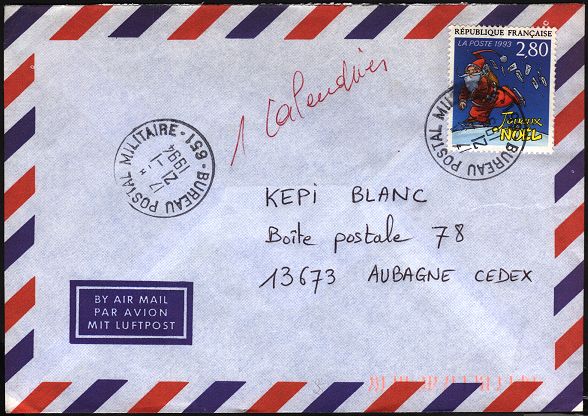 RÉPUBLIQUE FRANÇAISE
LA POSTE 1993
2,80
Joyeux
NOËL
1 Calendrier
BUREAU POSTAL MILITAIRE • 651 •
17 H
21 - 1
1994
BUREAU POSTAL MILITAIRE
KEPI BLANC
Boîte postale 78
13673 AUBAGNE CEDEX
BY AIR MAIL
PAR AVION
MIT LUFTPOST